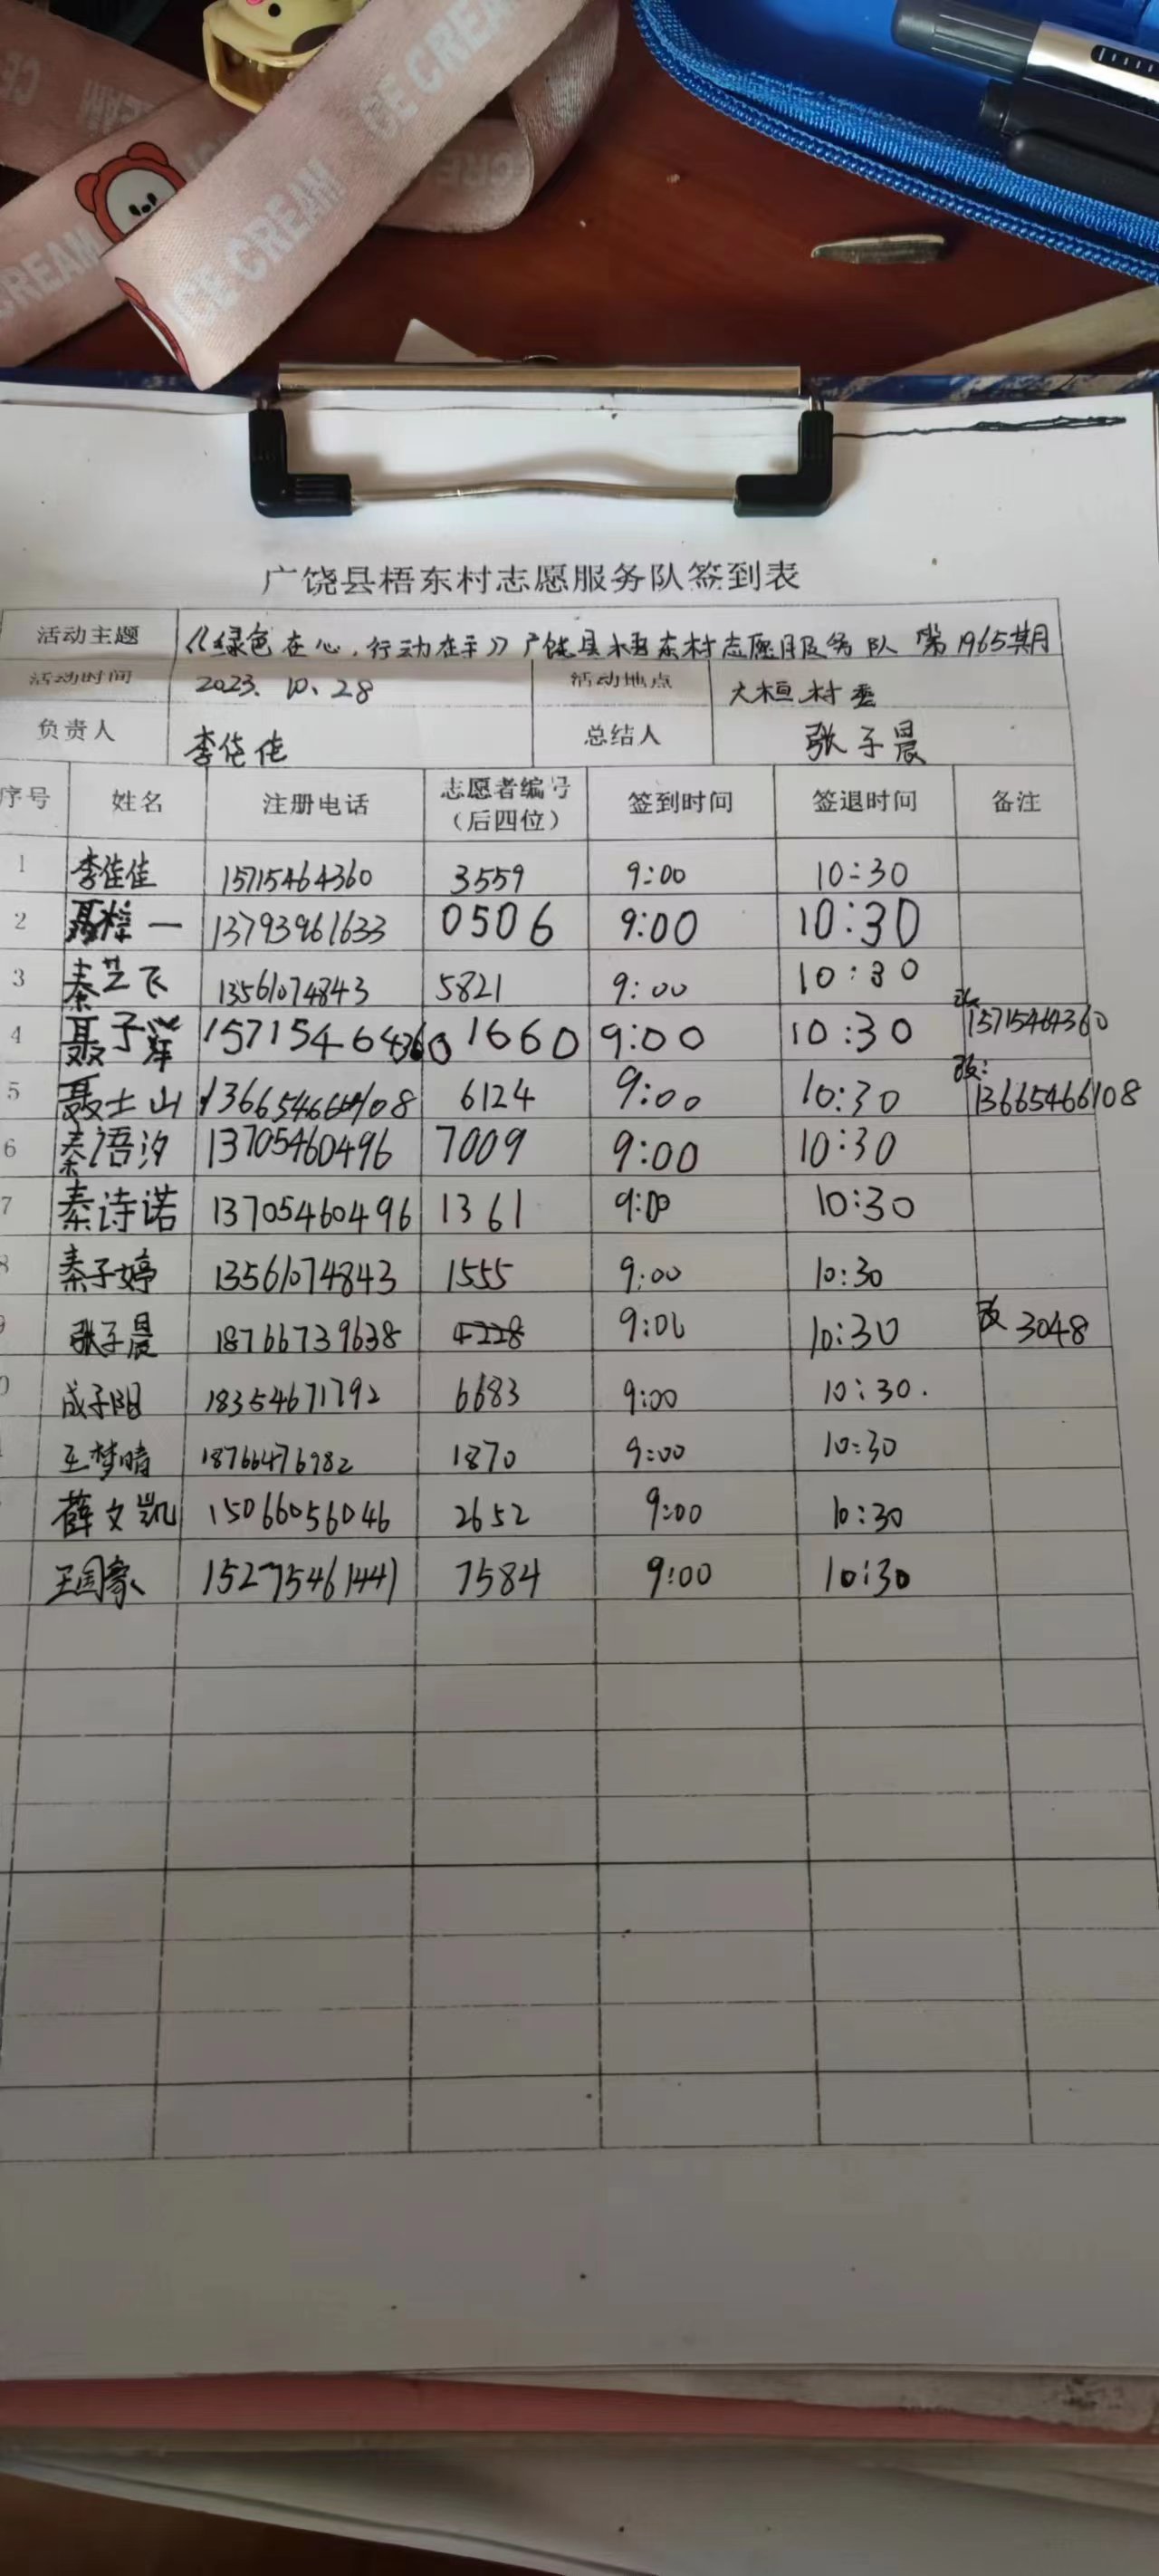 ICE CREAM
ICE CREAM
CREAM
广饶县梧东村志愿服务队签到表
活动主题 《绿色在心,行动在手》广饶县梧东村志愿服务队 第1965期
活动时间 2023.10.28 活动地点 大桓村委
负责人 李佳佳 总结人 张子晨
序号 姓名 注册电话 志愿者编号(后四位) 签到时间 签退时间 备注
1 李佳佳 15715464360 3559 9:00 10:30
2 聂梓一 13793961633 0506 9:00 10:30
3 秦艺飞 13561074843 5821 9:00 10:30
4 聂子洋 15715464360 1660 9:00 10:30 改 15715464360
5 聂士山 6124 9:00 10:30 改: 13665466108
6 秦语汐 13705460496 7009 9:00 10:30
7 秦诗诺 13705460496 1361 9:00 10:30
秦子婷 13561074843 1555 9:00 10:30
张子晨 18766739638 4228 9:00 10:30 改 3048
成子阳 18354671792 6683 9:00 10:30.
王梦晴 18766476982 1870 9:00 10:30
薛文凯 15066056046 2652 9:00 10:30
王国豪 15275461441 7584 9:00 10:30